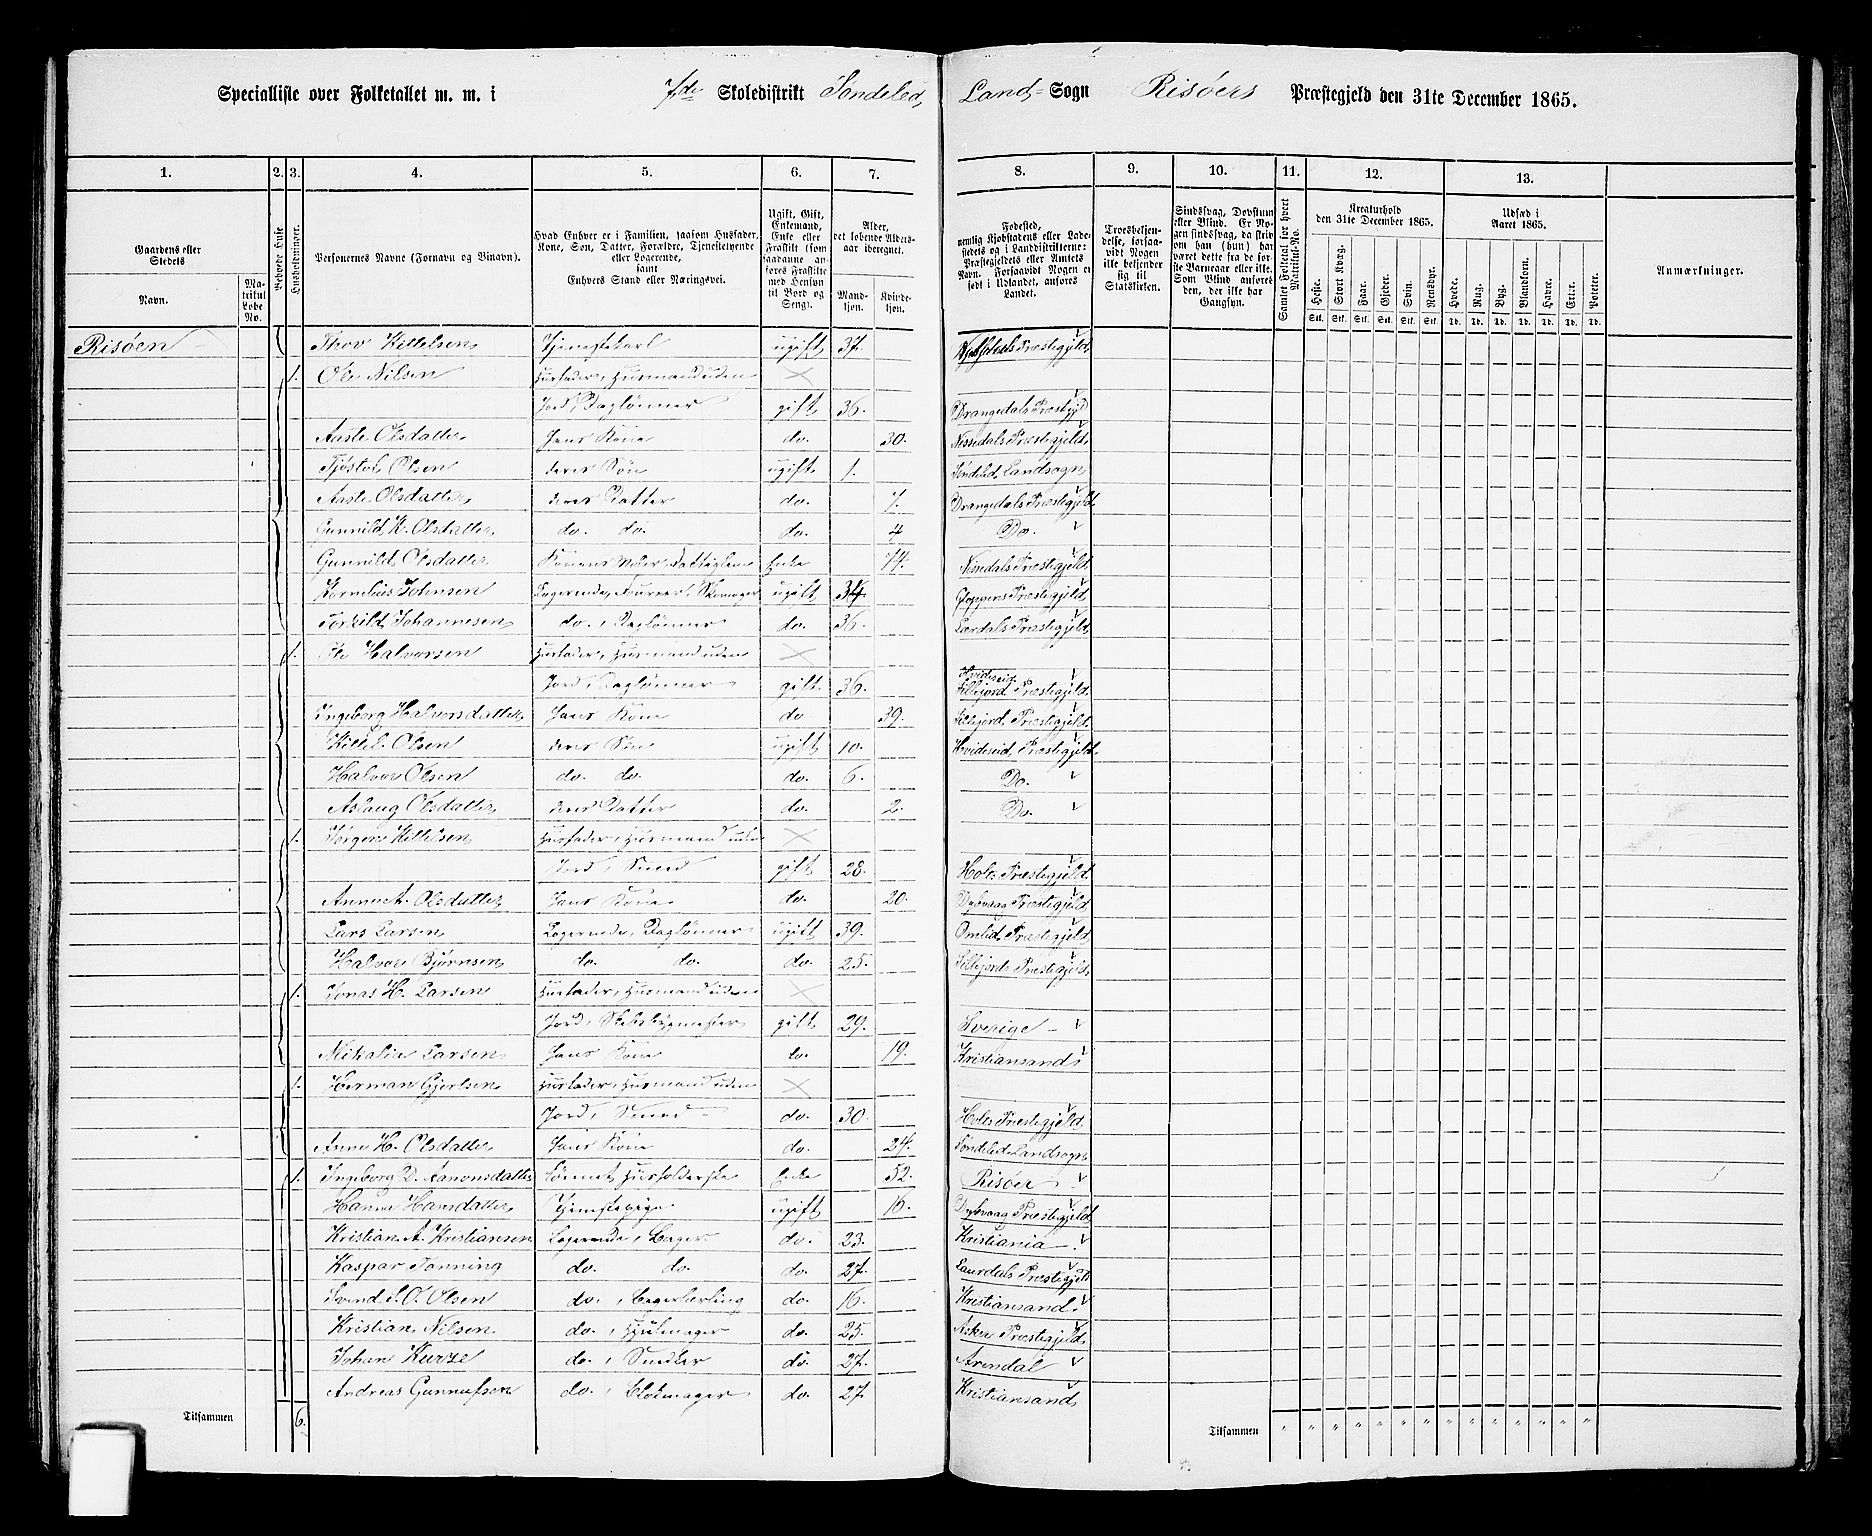 Specialliste over Folketallet m. m. i 7de Skoledistrikt Søndeled, Land-Sogn Risøers Præstegjeld den 31te December 1865.
1. 2. 3. 4. 5. 6. 7. 8. 9. 10. 11. 12. 13.
Gaardens eller Stedets
Navn.
Matrikul Løbe No.
Beboede Huse
Husholdninger.
Personernes Navne (Fornavn og Binavn).
Hvad Enhver er i Familien, saasom Husfader, Kone, Søn, Datter, Forældre, Tjenestetyende eller Logerende, samt Enhvers Stand eller Næringsvei.
Ugift, Gift, Enkemand, Enke eller Fraskilt (som saadanne anføres Fraskilte med Hensyn til Bord og Seng).
Alder, det løbende Aldersaar iberegnet.
Mandkjøn.
Kvindekjøn.
Fødested, nemlig Kjøbstadens eller Ladestedets og i Landdistrikterne: Præstegjeldets eller Amtets Navn. Forsaavidt Nogen er født i Udlandet, anføres Landet.
Troesbekjendelse, forsaavidt Nogen ikke bekjender sig til Statskirken.
Sindssvag, Døvstum eller Blind. Er Nogen sindssvag, da skrives om han (hun) har været dette fra de første Barneaar eller ikke. Som Blind anføres den, der ikke har Gangsyn.
Samlet Folketal for hvert Matrikul-No.
Kreaturhold den 31te December 1865.
Heste. Stort Kvæg. Faar. Gjeder. Svin. Rensdyr.
Udsæd i Aaret 1865.
Hvede. Rug. Byg. Blandkorn. Havre. Erter. Poteter.
Stk. Stk. Stk. Stk. Stk. Stk. Td. Td. Td. Td. Td. Td. Td.
Anmærkninger.
Risøen Thov Kittelsen Tjenestekarl ugift 37. Præstegjeld
1. Ole Nilsen Husfader, Husmand uden
Jord, Daglønner gift 36. Drangedals Præstegjld
Aaste Olsdatter Hans Kone do. 30. Nissedals Præstegjeld
Tjøstel Olsen deres Søn ugift 1. Søndeled Landsogn
Aaste Olsdatter deres Datter do. 7. Drangedals Præstegjeld
Gunnild K. Olsdatter do. do. do. 4 Do.
Gunnild Olsdatter Konens Moder, Fattiglem Enke 74. Nissedals Præstegjeld
Kornelius Johnsen Logerende, Skomager ugift 34 Gloppens Præstegjeld
Torkild Johannesen do., Daglønner do. 36. Lærdals Præstegjeld
1. Ole Halvorsen Husfader, Husmand uden
Jord, Daglønner gift 36. Hvideseid Præstegjeld
Ingeborg Halvorsdatter Hans Kone do 39. Sillejord Præstegjeld
Kittel Olsen deres Søn ugift 10. Hvideseid Præstegjeld
Halvor Olsen do. do. do. 6. Do.
Aslaug Olsdatter deres Datter do. 2. Do.
1. Jørgen Kittelsen Husfader, Husmand uden
Jord, Smed gift 28. Holts Præstegjeld
Anne A. Olsdatter Hans Kone do. 20. Dybvaag Præstegjeld
Lars Larsen Logerende, Daglønner ugift 39. Omlid Præstegjeld
Halvor Bjørnsen do. do. do. 25. Sillejord Præstegjeld
1. Jonas H. Larsen Husfader, Husmand uden
Jord, Skibsbygmester gift 29. Sverige
Mikalia Larsen Hans Kone do. 19. Kristiansand
1. Herman Gjertsen Husfader, Husmand uden
Jord, Smed do. 30. Holts Præstegjeld
Anne H. Olsdatter Hans Kone do. 24. Søndeled Landsogn
1. Ingeborg D. Aanonsdatter Lønnet Husholderske Enke 52. Risøer
Hanne Hansdatter Tjenestepige ugift 16. Dybvaag Præstegjeld
Kristian A. Kristiansen Logerende, Bager do. 23. Kristiania
Kaspar Tanning do. do. do. 27. Laurdals Præstegjeld
Svend S. O. Olsen do., Bagerlærling do. 16. Kristiansand
Kristian Nilsen do., Hjulmager do. 25. Aker Præstegjeld
Johan Kurze do., Snedker do. 27. Arendal
Andreas Gunnufsen do., Blokmager do. 27 Kristiansand
Tilsammen 6. Tilsammen " " " " " " " " " " " " " "